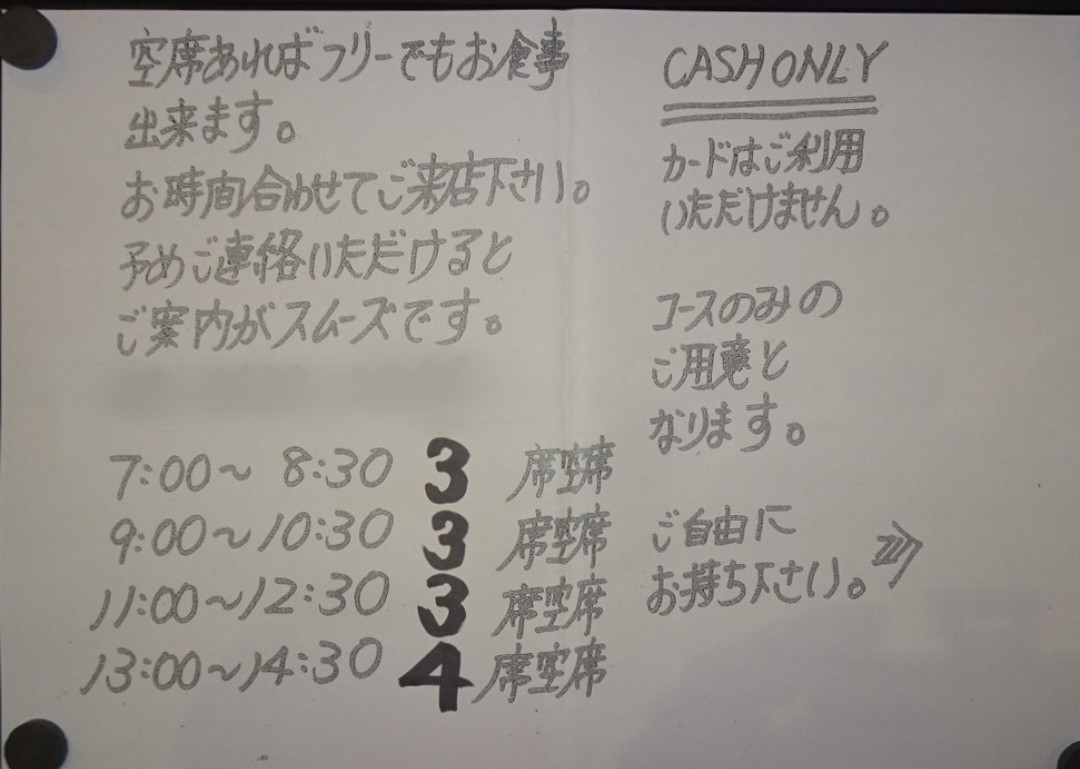 空席あればフリーでもお食事
出来ます。
お時間合わせてご来店下さい。
予めご連絡いただけると
ご案内がスムーズです。
7:00〜 8:30 3 席空席
9:00〜10:30 3 席空席
11:00〜12:30 3 席空席
13:00〜14:30 4 席空席
CASH ONLY
カードはご利用
いただけません。
コースのみの
ご用意と
なります。
ご自由に
お持ち下さい。